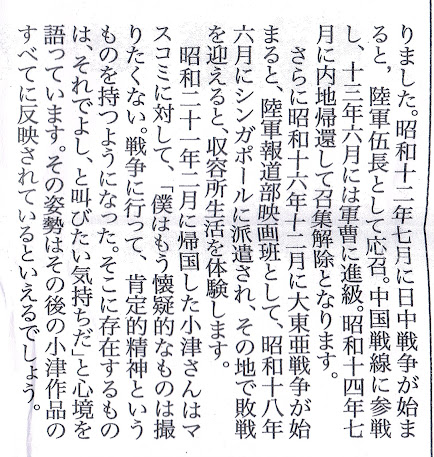 りました。昭和十二年七月に日中戦争が始ま
ると、陸軍伍長として応召。中国戦線に参戦
し、十三年六月には軍曹に進級。昭和十四年七
月に内地帰還して召集解除となります。
さらに昭和十六年十二月に大東亜戦争が始
まると、陸軍報道部映画班として、昭和十八年
六月にシンガポールに派遣され、その地で敗戦
を迎えると、収容所生活を体験します。
昭和二十一年二月に帰国した小津さんはマ
スコミに対して、「僕はもう懐疑的なものは撮
りたくない。戦争に行って、肯定的精神という
ものを持つようになった。そこに存在するもの
は、それでよし、と叫びたい気持ちだ」と心境を
語っています。その姿勢はその後の小津作品の
すべてに反映されているといえるでしょう。